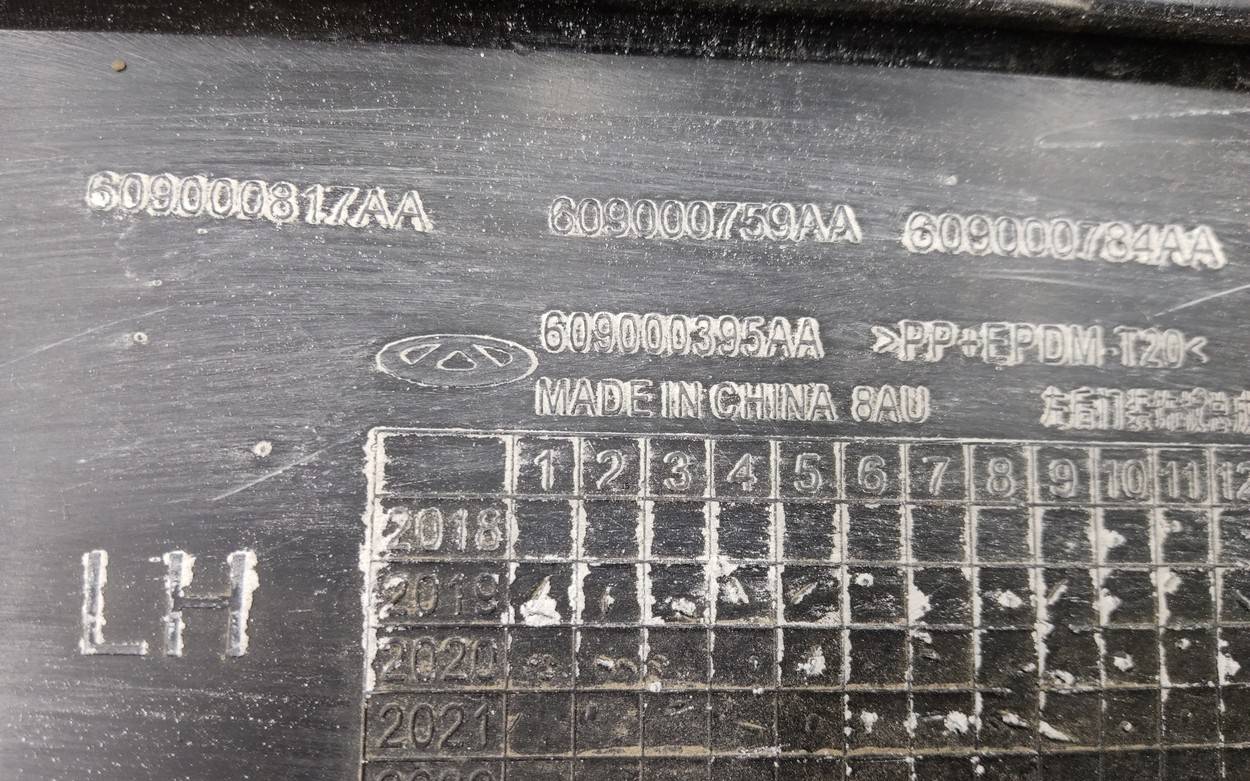 609000817AA 609000759AA 609000784AA
609000395AA >PP+EPDM-T20<
MADE IN CHINA 8AU 左后门装饰
1 2 3 4 5 6 7 8 9 10 11 12
2018
2019
2020
2021
LH